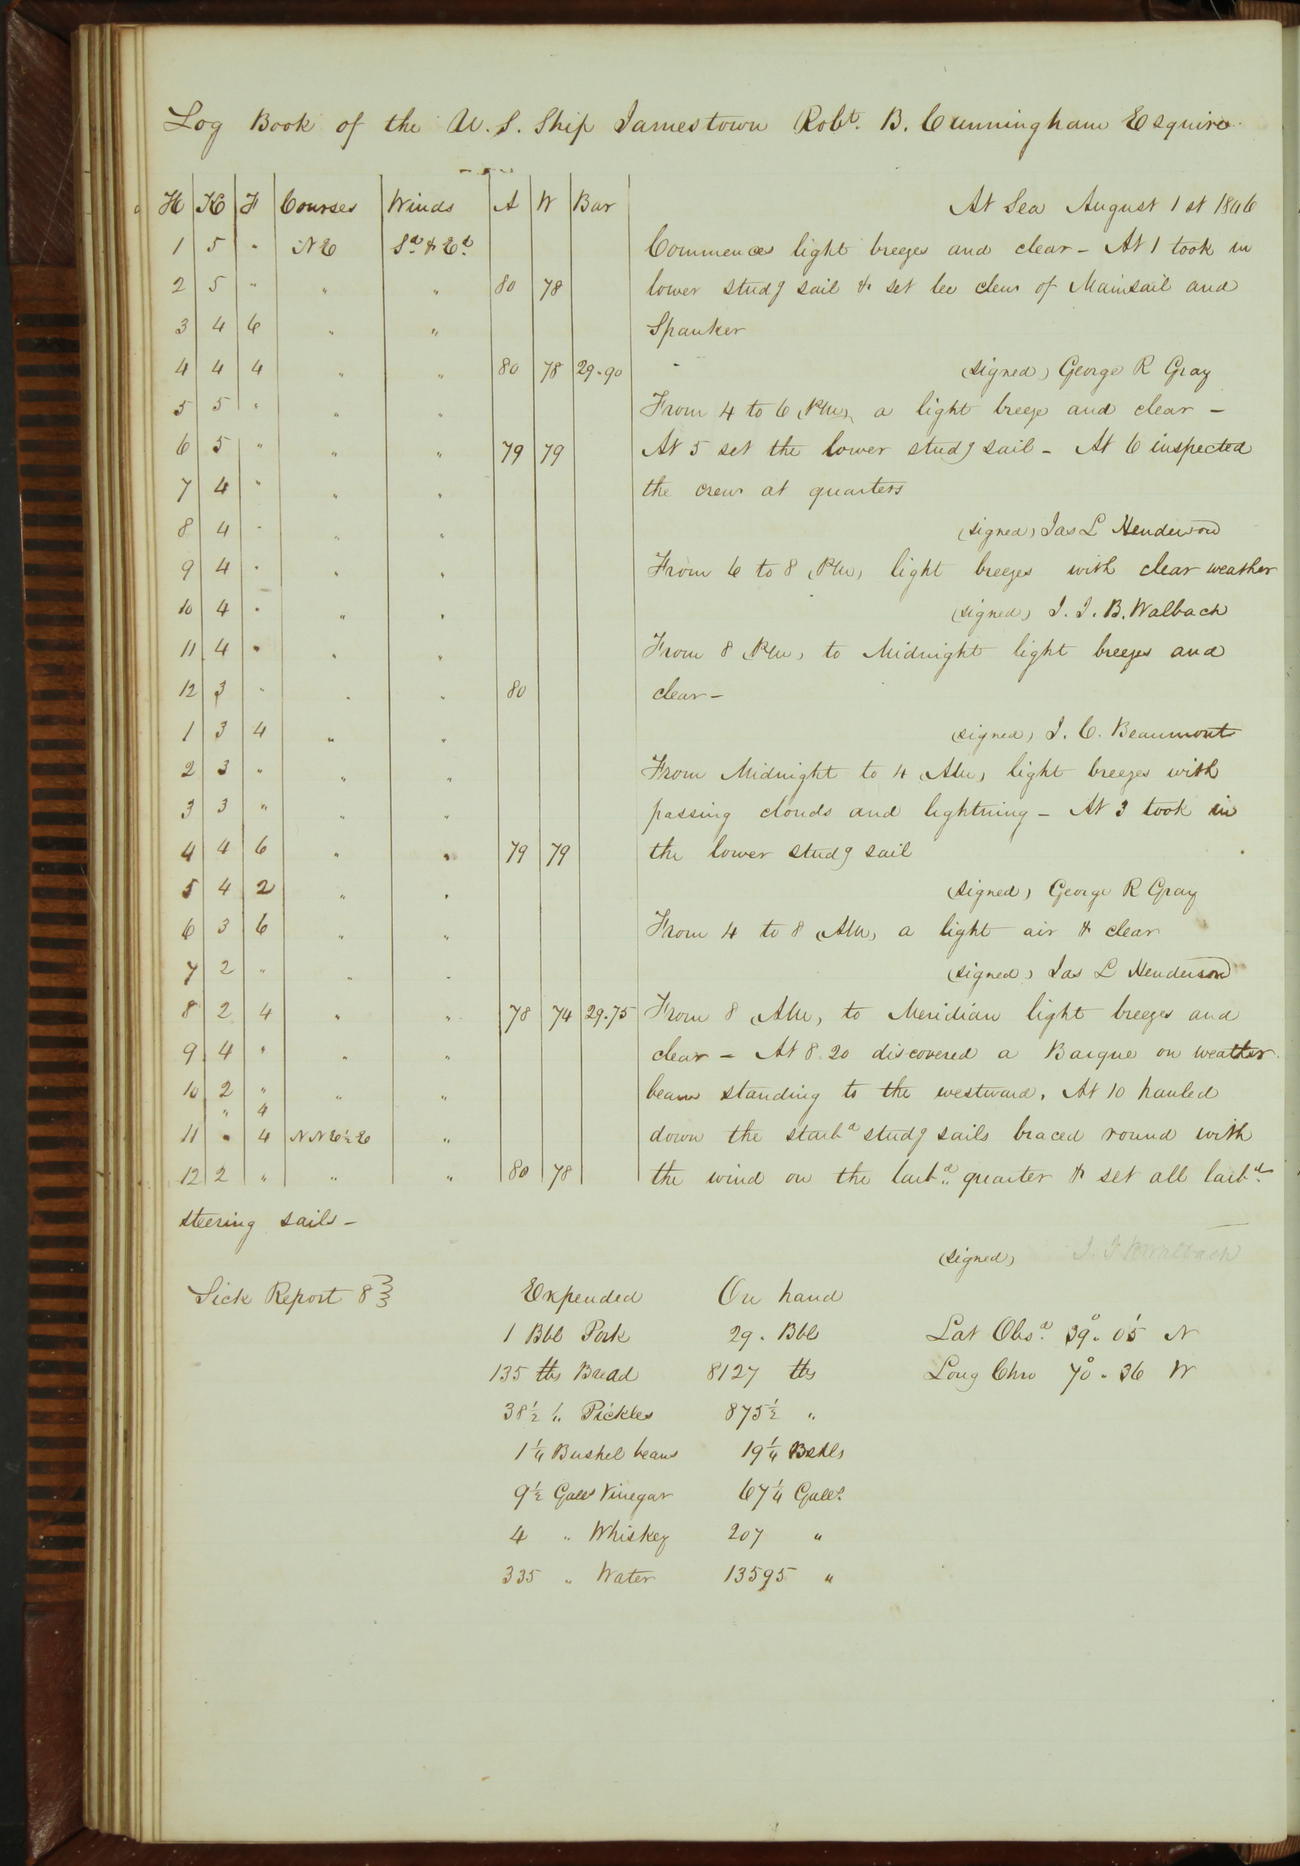 Log Book of the U. S. Ship Jamestown Robt. B. Cunningham Esquire
H K F Courses Winds A W Bar At Sea August 1st 1846
1 5 " NE Sd. & Ed. Commences light breezes and clear - At 1 took in
2 5 " " " 80 78 lower studg sail & set lee clew of Mainsail and
3 4 6 " " Spanker
4 4 4 " " 80 78 29.90 (signed) George R Gray
5 5 " " " From 4 to 6 PM, a light breeze and clear -
6 5 " " " 79 79 At 5 set the lower studg sail - At 6 inspected
7 4 " " " the crew at quarters
8 4 " " " (signed) Jas L Henderson
9 4 " " " From 6 to 8 PM, light breezes with clear weather
10 4 " " " (signed) J. J. B. Walbach
11 4 " " " From 8 PM, to Midnight light breezes and
12 3 " " " 80 clear -
1 3 4 " " (signed) J. C. Beaumont
2 3 " " " From Midnight to 4 AM, light breezes with
3 3 " " " passing clouds and lightning - At 3 took in
4 4 6 " " 79 79 the lower studg sail
5 4 2 " " (signed) George R Gray
6 3 6 " " From 4 to 8 AM, a light air & clear
7 2 " " " (signed) Jas L Henderson
8 2 4 " " 78 74 29.75 From 8 AM, to Meridian light breezes and
9 4 " " " clear - At 8.20 discovered a Barque on weather
10 2 " " " beam standing to the westward. At 10 hauled
" 4
11 " 4 NNE½E " down the starbd studg sails braced round with
12 2 " " " 80 78 the wind on the larbd. quarter & set all larbd.
steering sails -
(signed) J. J. B Walbach
Sick Report 8 Expended On hand
1 Bbl Pork 29. Bbls Lat Obsd. 39°. 05' N
135 lbs Bread 8127 lbs Long Chro 70°. 36 W
38½ " Pickles 875½ "
1¼ Bushel beans 19¼ Bshls
9½ Galls Vinegar 67¼ Galls.
4 " Whiskey 207 "
335 " Water 13595 "